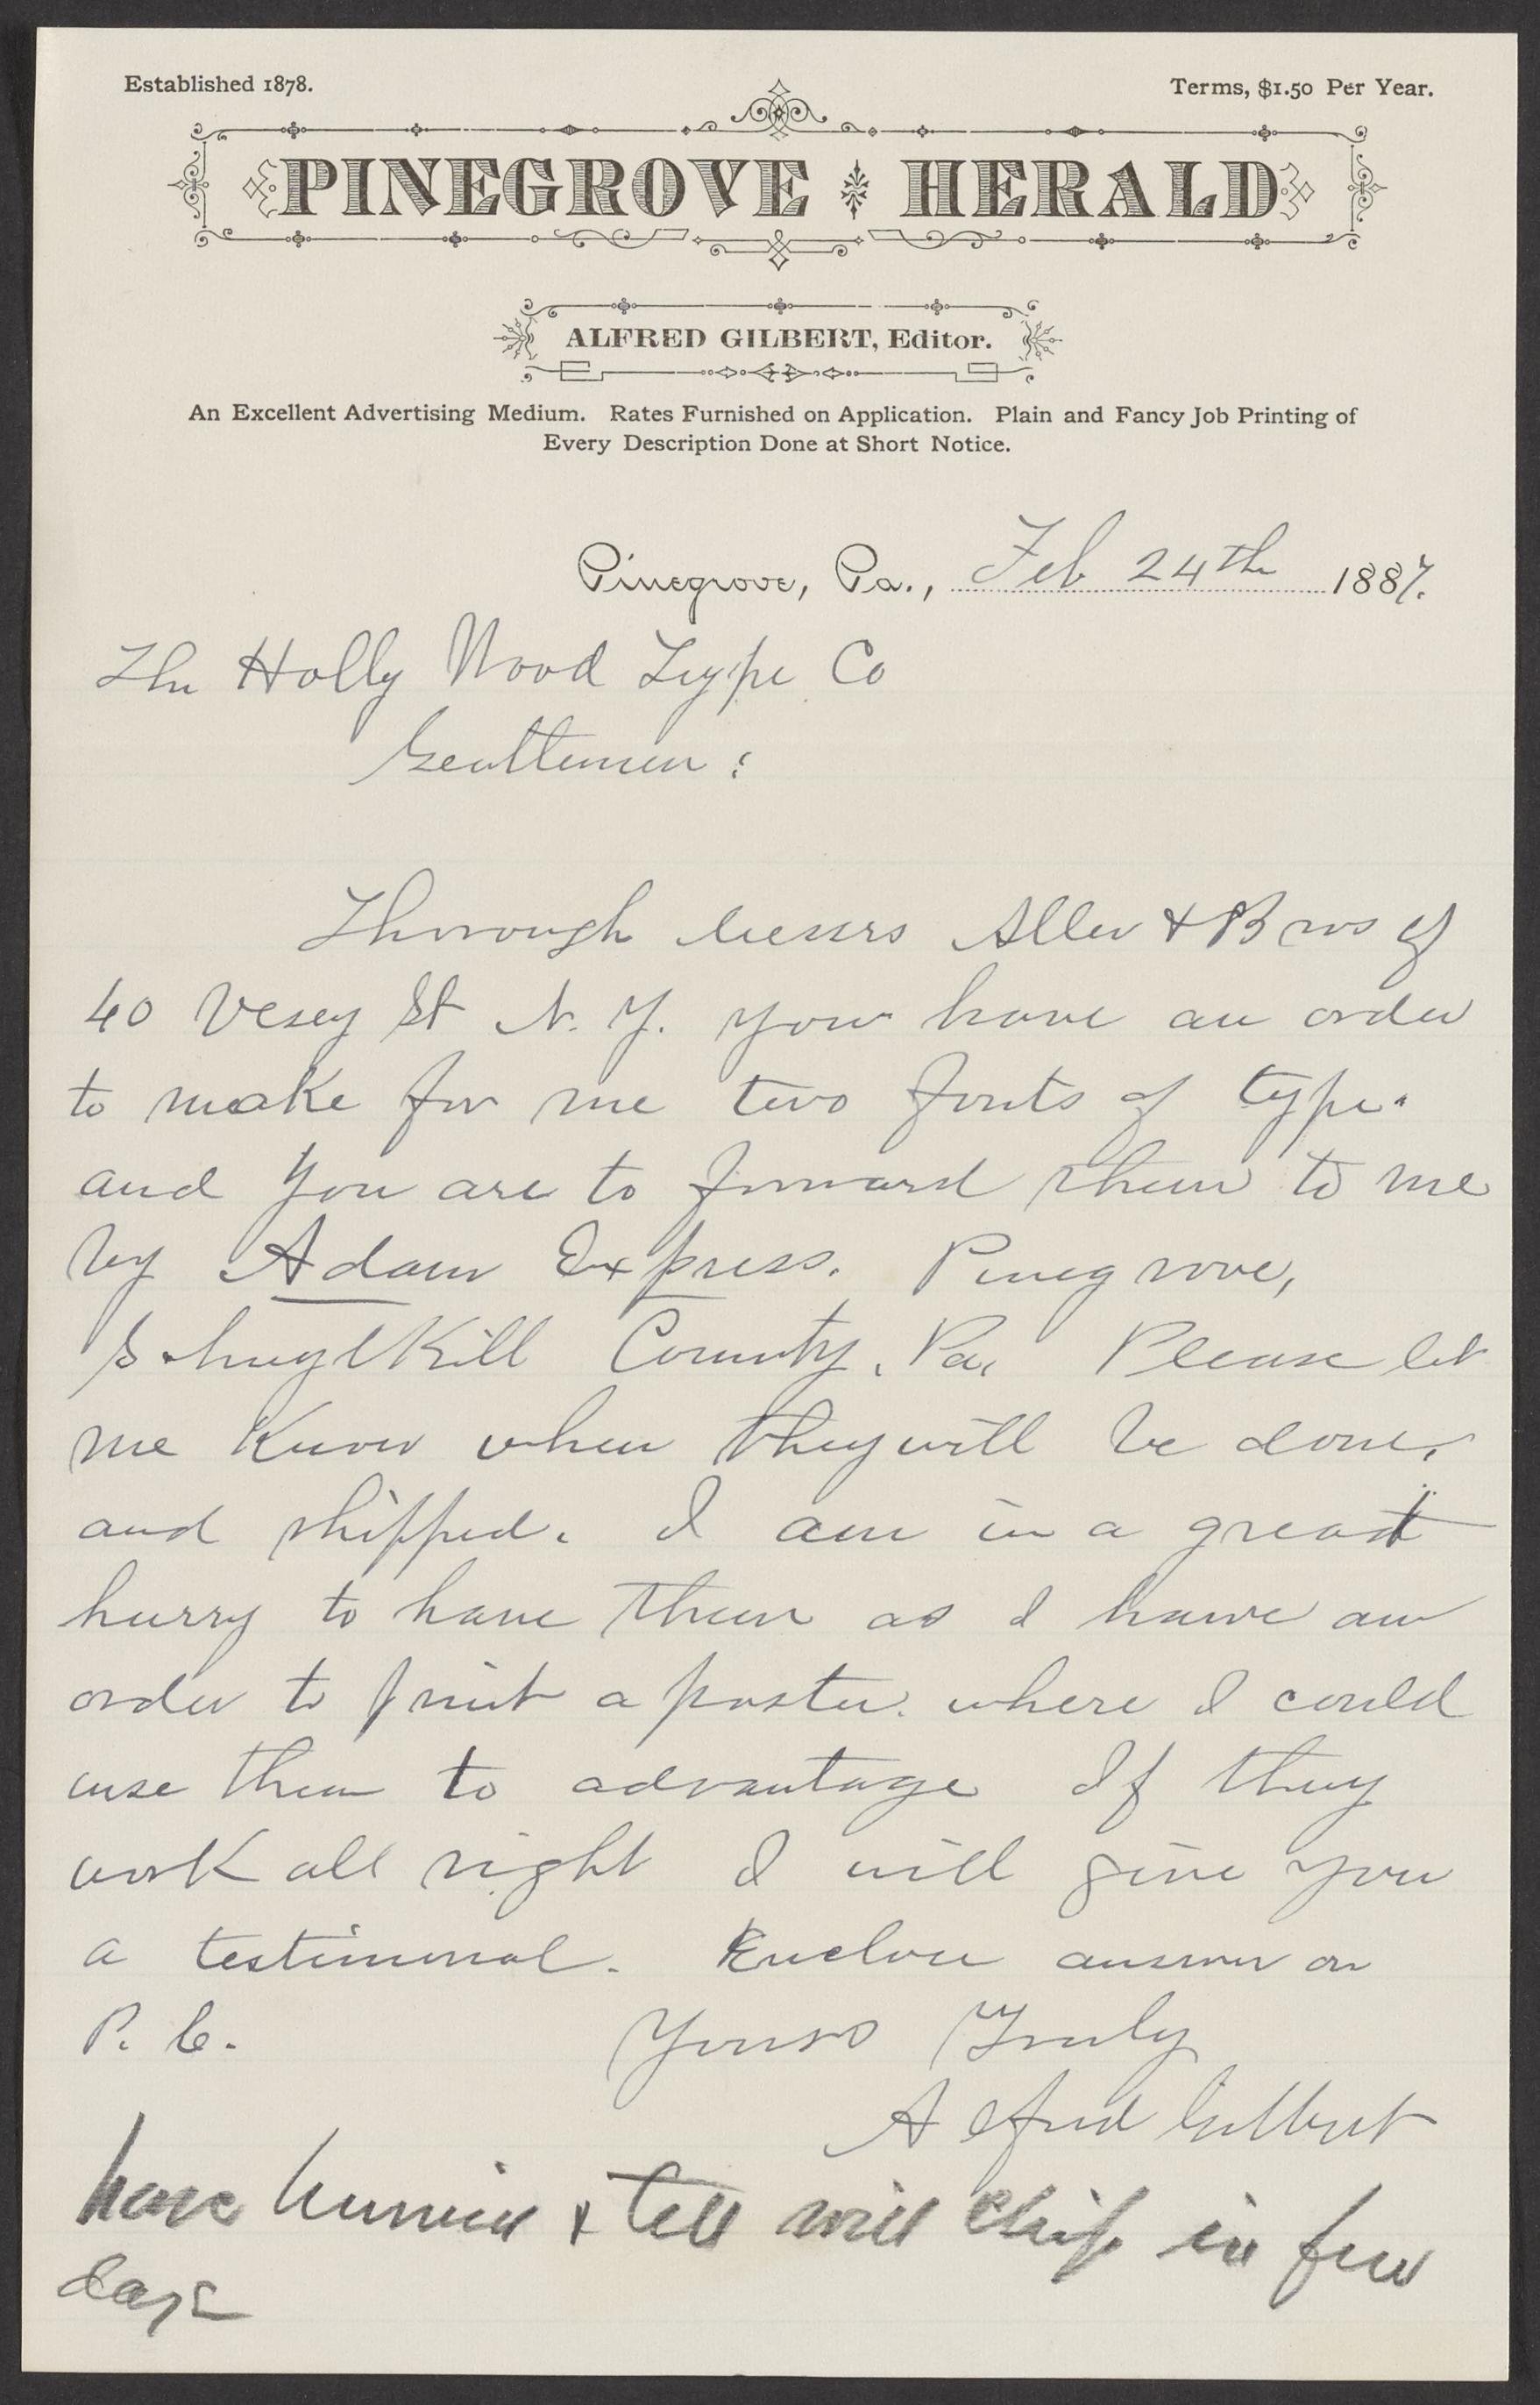 Established 1878.
Terms, $1.50 Per Year.
PINEGROVE HERALD
ALFRED GILBERT, Editor.
An Excellent Advertising Medium. Rates Furnished on Application. Plain and Fancy Job Printing of
Every Description Done at Short Notice.
Pinegrove, Pa., Feb 24th 1887.
The Holly Wood Type Co
Gentlemen:
Thorough Messrs Allen & Bros of
40 Vesey St N. Y. you have an order
to make for me two fonts of type.
and you are to forward them to me
by Adam Express. Pinegrove,
Schuylkill County, Pa, Please let
me know when they will be done,
and shipped. I am in a great
hurry to have them as I have an
order to print a poster. where I could
use them to advantage If they
work all right I will give you
a testimonal. Enclose answer on
P. C. Yours Truly
Alfred Gilbert
have & tell will ship in few
days